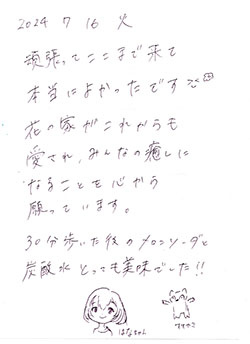 2024 7 16 火
頑張ってここまで来て
本当によかったです
花の家がこれからも
愛され、みんなの癒しに
なることを心から
願っています。
30分歩いた後のメロンソーダと
炭酸水とっても美味でした!!
はなちゃん